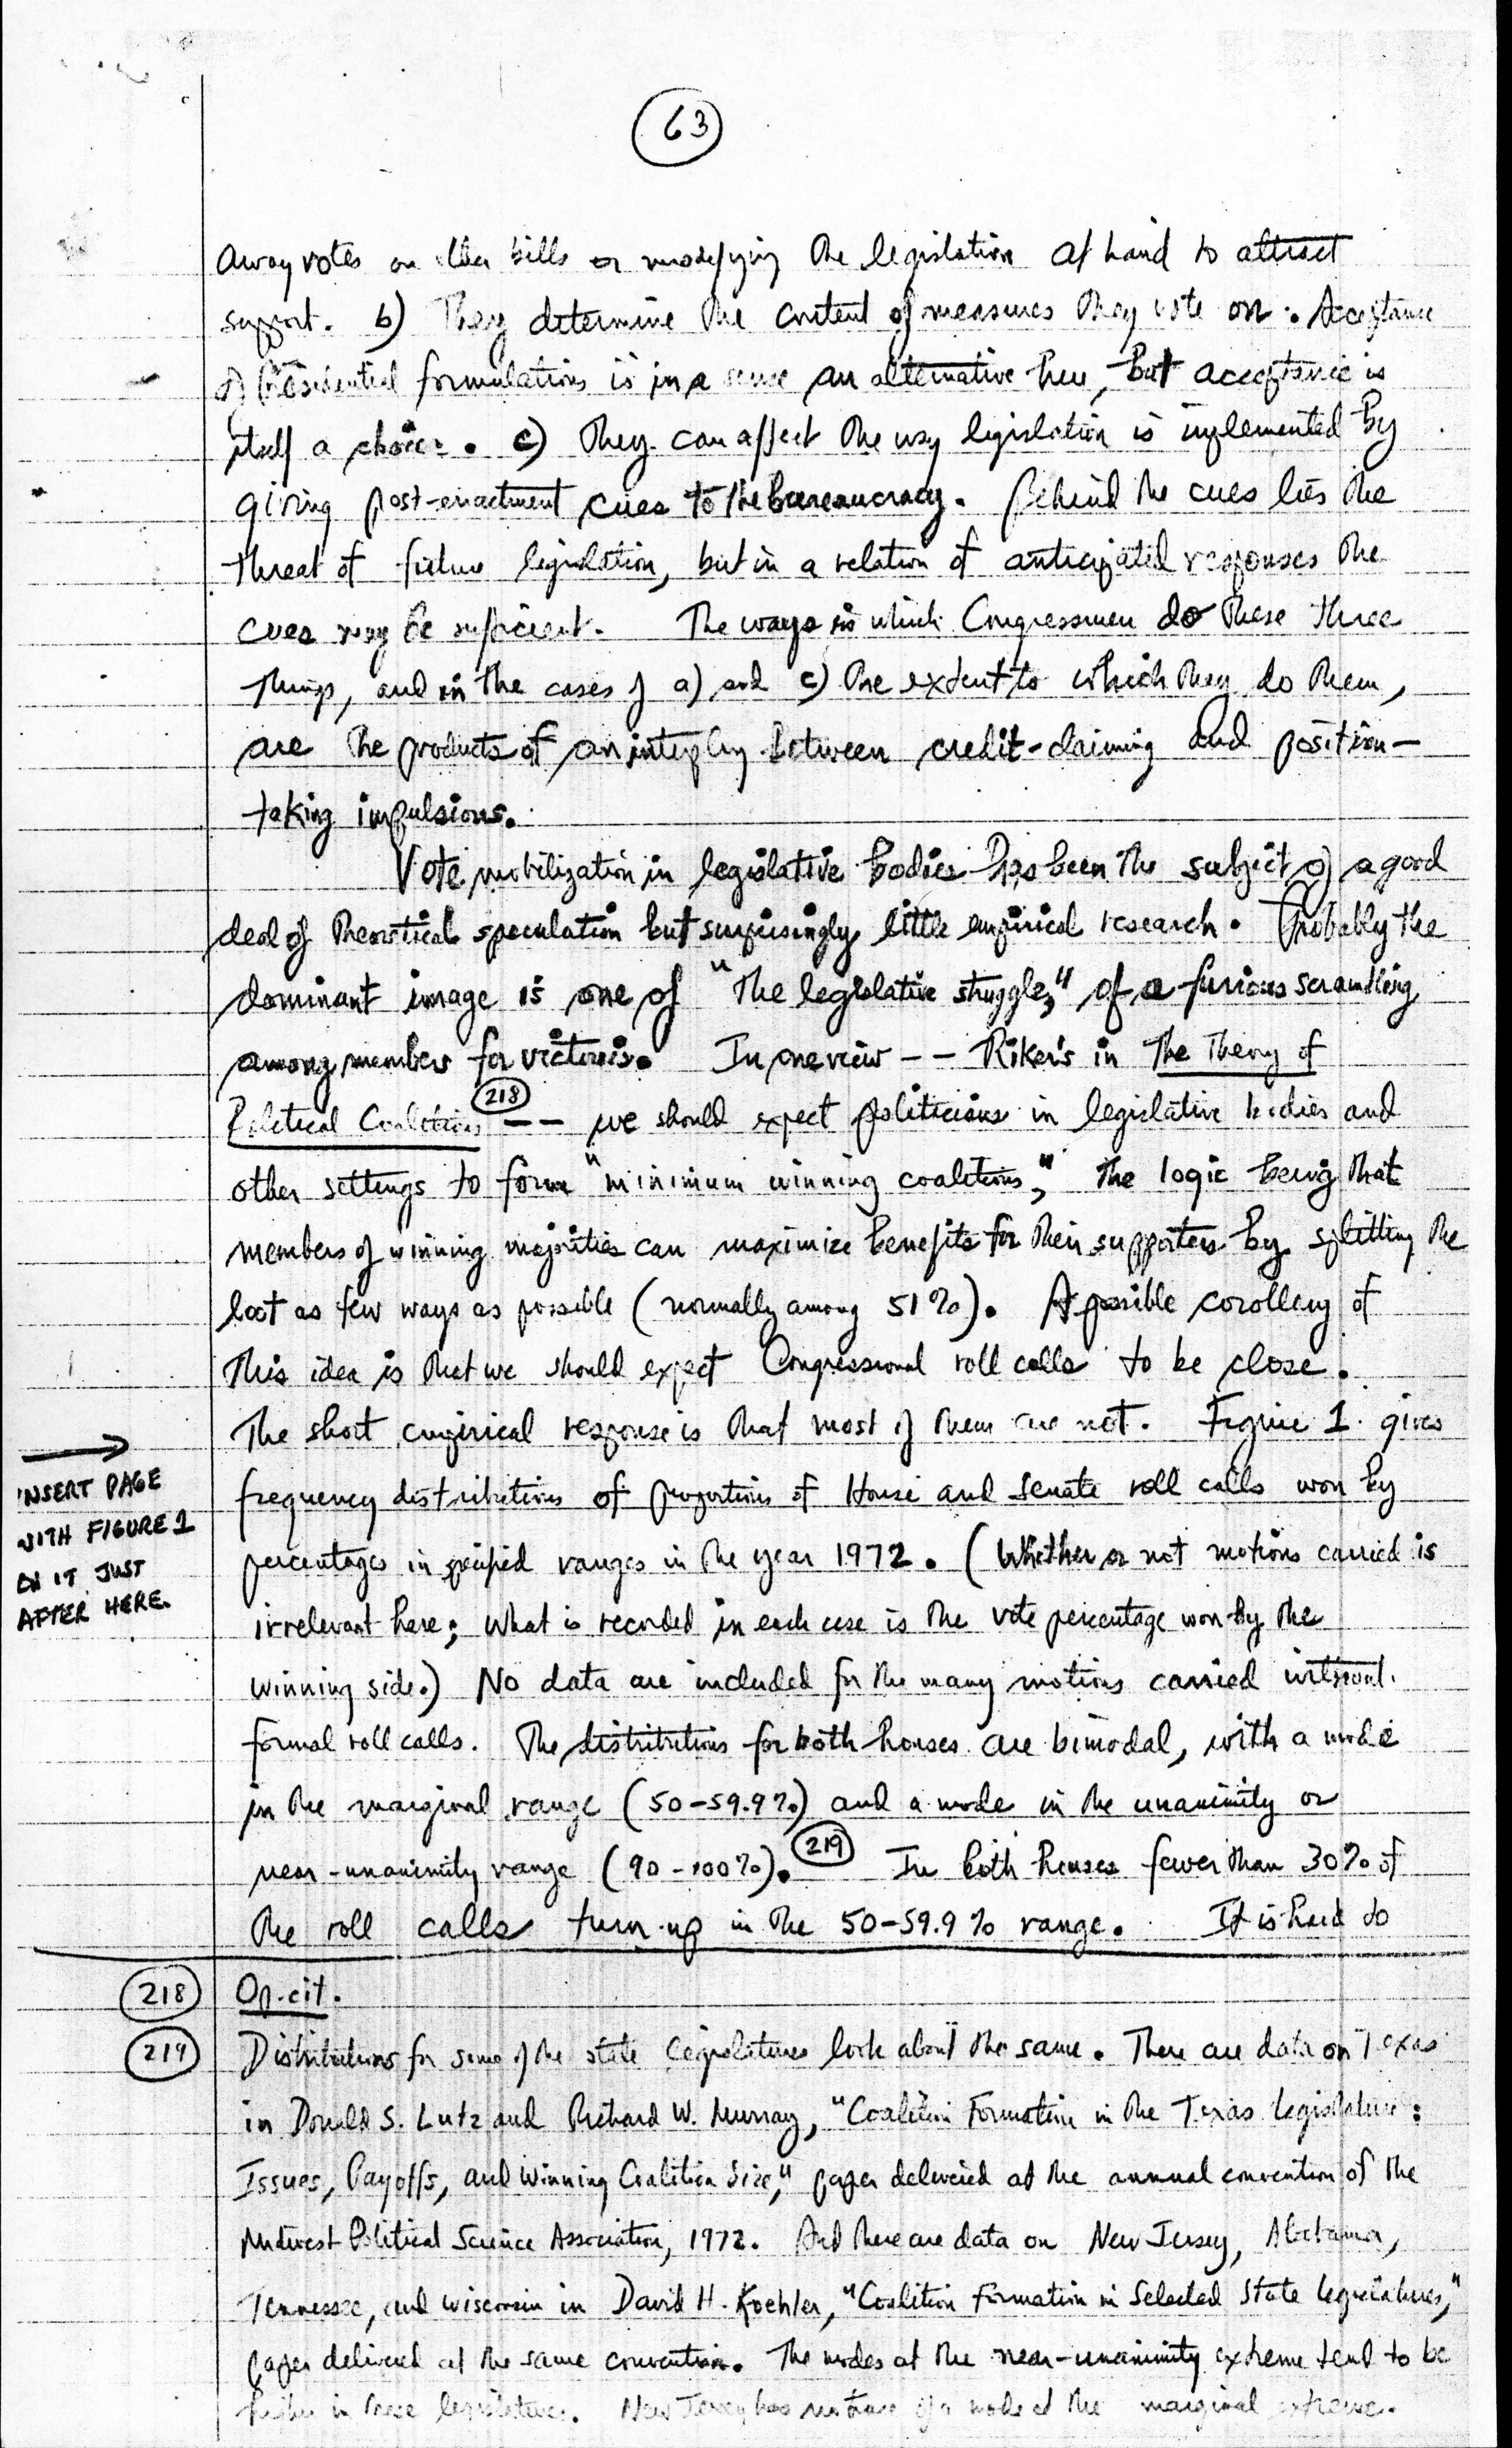 63
away votes on other bills or modifying the legislation at hand to attract
support. b) They determine the content of measures they vote on. Acceptance
of Presidential formulations is in a sense an alternative here, but acceptance is
itself a choice. c) They can affect the way legislation is implemented by
giving post-enactment cues to the bureaucracy. Behind the cues lies the
threat of future legislation, but in a relation of anticipated responses the
cues may be sufficient. The ways in which Congressmen do these three
things, and in the cases of a) and c) the extent to which they do them,
are the products of an interplay between credit-claiming and position-
taking impulsions.
Vote mobilization in legislative bodies has been the subject of a good
deal of theoretical speculation but surprisingly little empirical research. Probably the
dominant image is one of "the legislative struggle," of a furious scrambling
among members for victories. In one view -- Riker's in The Theory of
Political Coalitions (218) -- we should expect politicians in legislative bodies and
other settings to form "minimum winning coalitions," the logic being that
members of winning majorities can maximize benefits for their supporters by splitting the
loot as few ways as possible (normally among 51%). A possible corollary of
this idea is that we should expect Congressional roll calls to be close.
The short empirical response is that most of them are not. Figure 1 gives
→
INSERT PAGE
WITH FIGURE 1
ON IT JUST
AFTER HERE.
frequency distributions of proportions of House and Senate roll calls won by
percentages in specified ranges in the year 1972. (Whether or not motions carried is
irrelevant here; what is recorded in each case is the vote percentage won by the
winning side.) No data are included for the many motions carried without
formal roll calls. The distributions for both houses are bimodal, with a mode
in the marginal range (50-59.9%) and a mode in the unanimity or
near-unanimity range (90-100%). (219) In both houses fewer than 30% of
the roll calls turn up in the 50-59.9% range. It is hard to
218 Op. cit.
219 Distributions for some of the state legislatures look about the same. There are data on Texas
in Donald S. Lutz and Richard W. Murray, "Coalition Formation in the Texas Legislature:
Issues, Payoffs, and Winning Coalition Size," paper delivered at the annual convention of the
Midwest Political Science Association, 1972. And there are data on New Jersey, Alabama,
Tennessee, and Wisconsin in David H. Koehler, "Coalition Formation in Selected State Legislatures,"
paper delivered at the same convention. The modes at the near-unanimity extreme tend to be
higher in these legislatures. New Jersey has no trace of a mode at the marginal extreme.